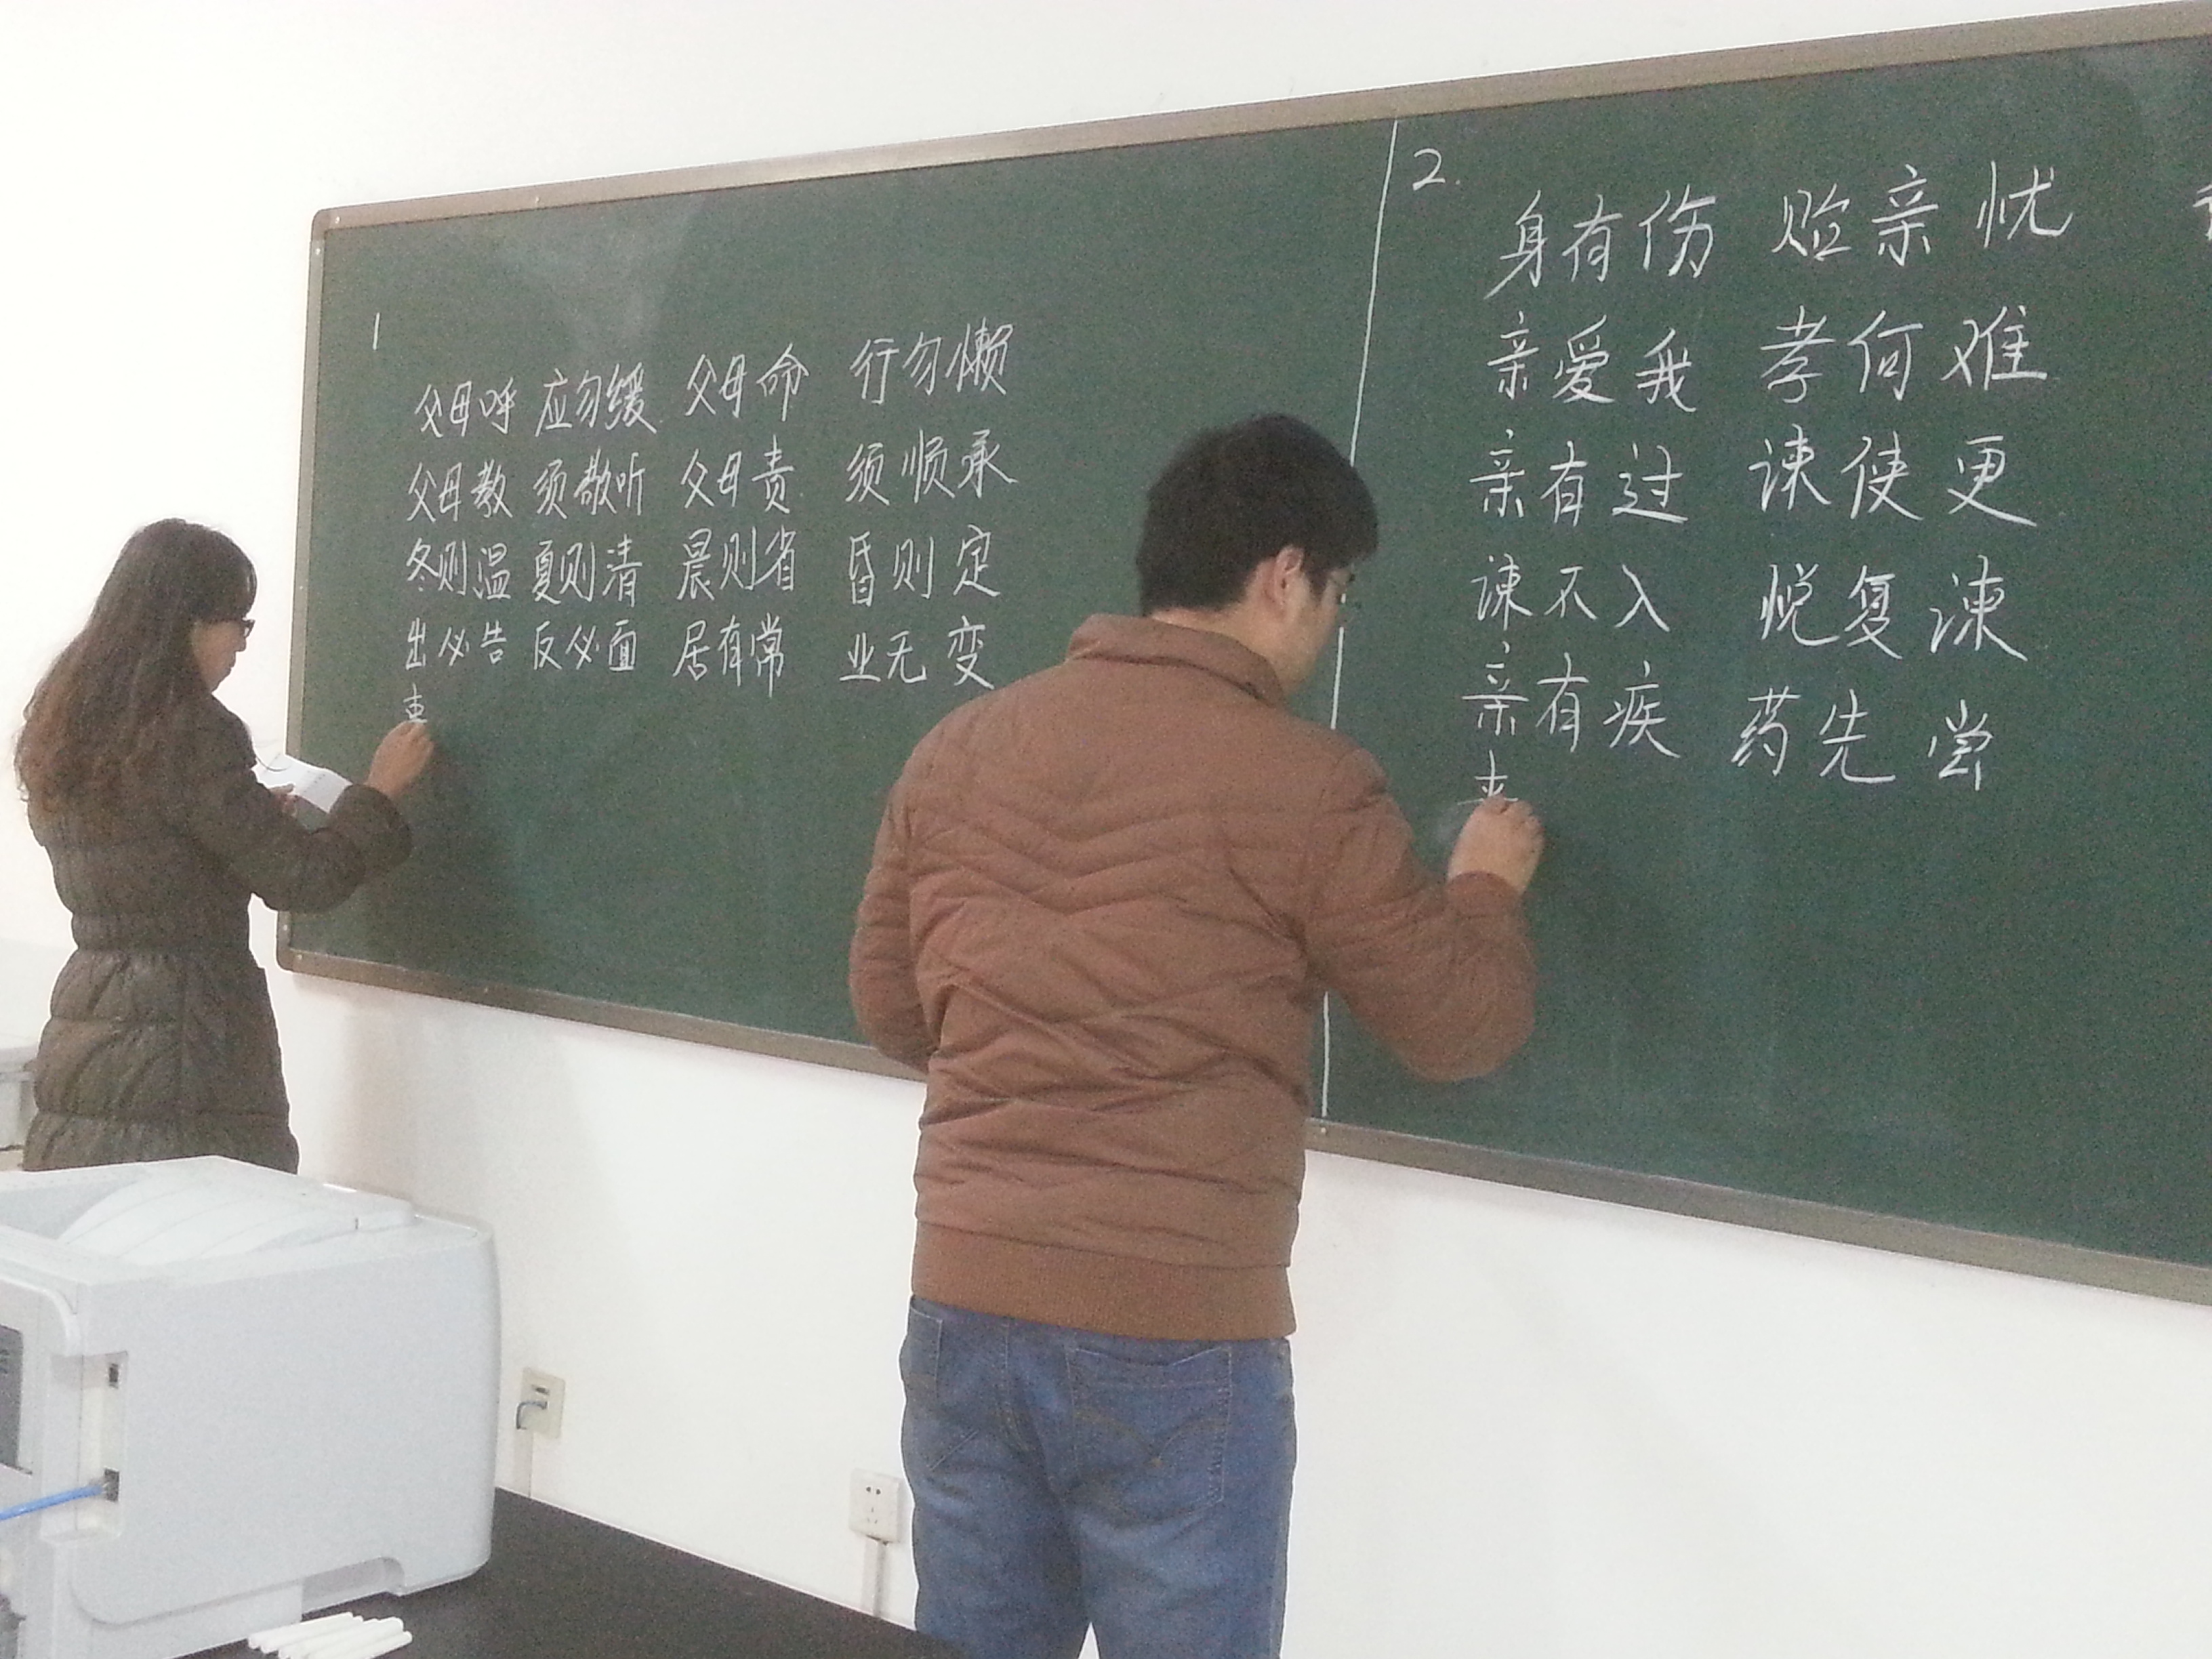 1
父母呼 应勿缓 父母命 行勿懒
父母教 须敬听 父母责 须顺承
冬则温 夏则清 晨则省 昏则定
出必告 反必面 居有常 业无变
2.
身有伤 贻亲忧
亲爱我 孝何难
亲有过 谏使更
谏不入 悦复谏
亲有疾 药先尝